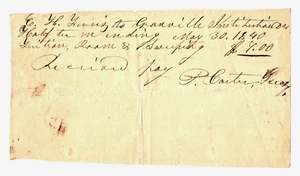 to Granville Institution Dr
Half term ending May 30. 1840
Tuition, Room & Sweeping $7.00
Received pay
P. Carter,